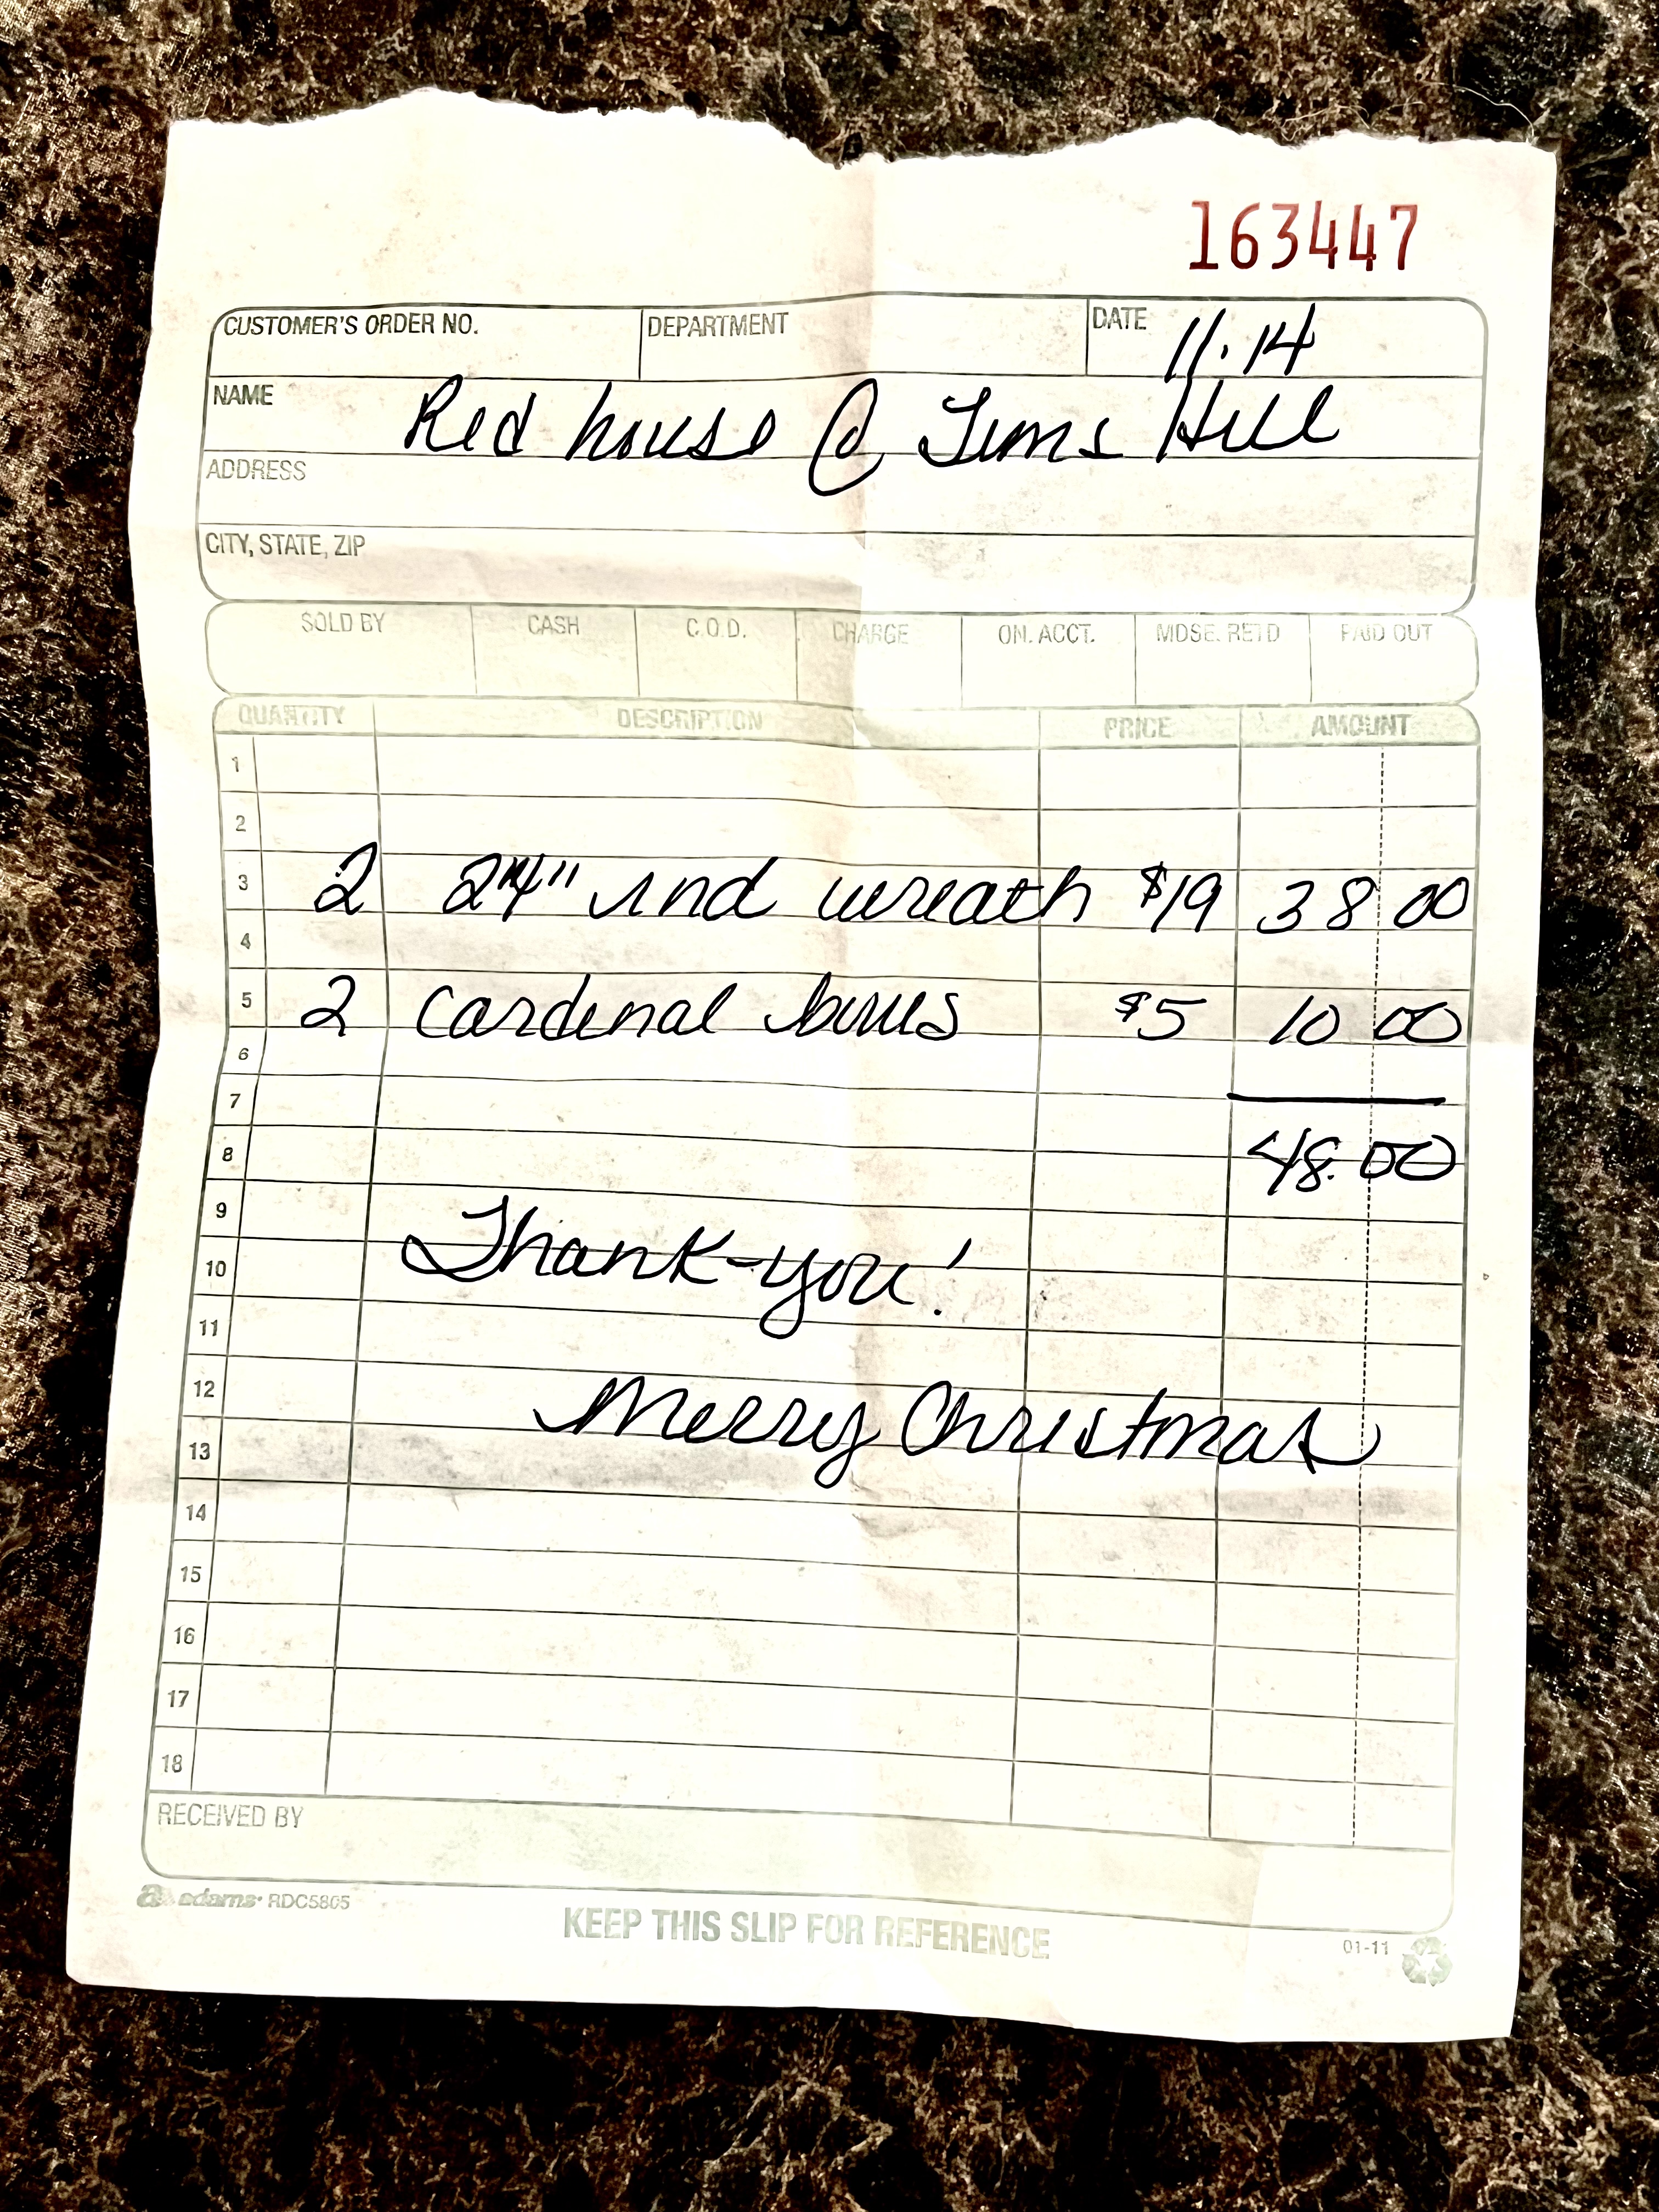 163447
CUSTOMER'S ORDER NO. DEPARTMENT DATE 11.14
NAME Red house @ Tims Hill
ADDRESS
CITY, STATE, ZIP
SOLD BY CASH C.O.D. CHARGE ON. ACCT. MDSE. RETD PAID OUT
QUANTITY DESCRIPTION PRICE AMOUNT
1
2
3 2 24" wreath $19 38 00
4
5 2 Cardinal $5 10 00
6
7
8 48.00
9
10 Thank-you!
11
12
13 Merry Christmas
14
15
16
17
18
RECEIVED BY
a adams RDC5805
KEEP THIS SLIP FOR REFERENCE
01-11